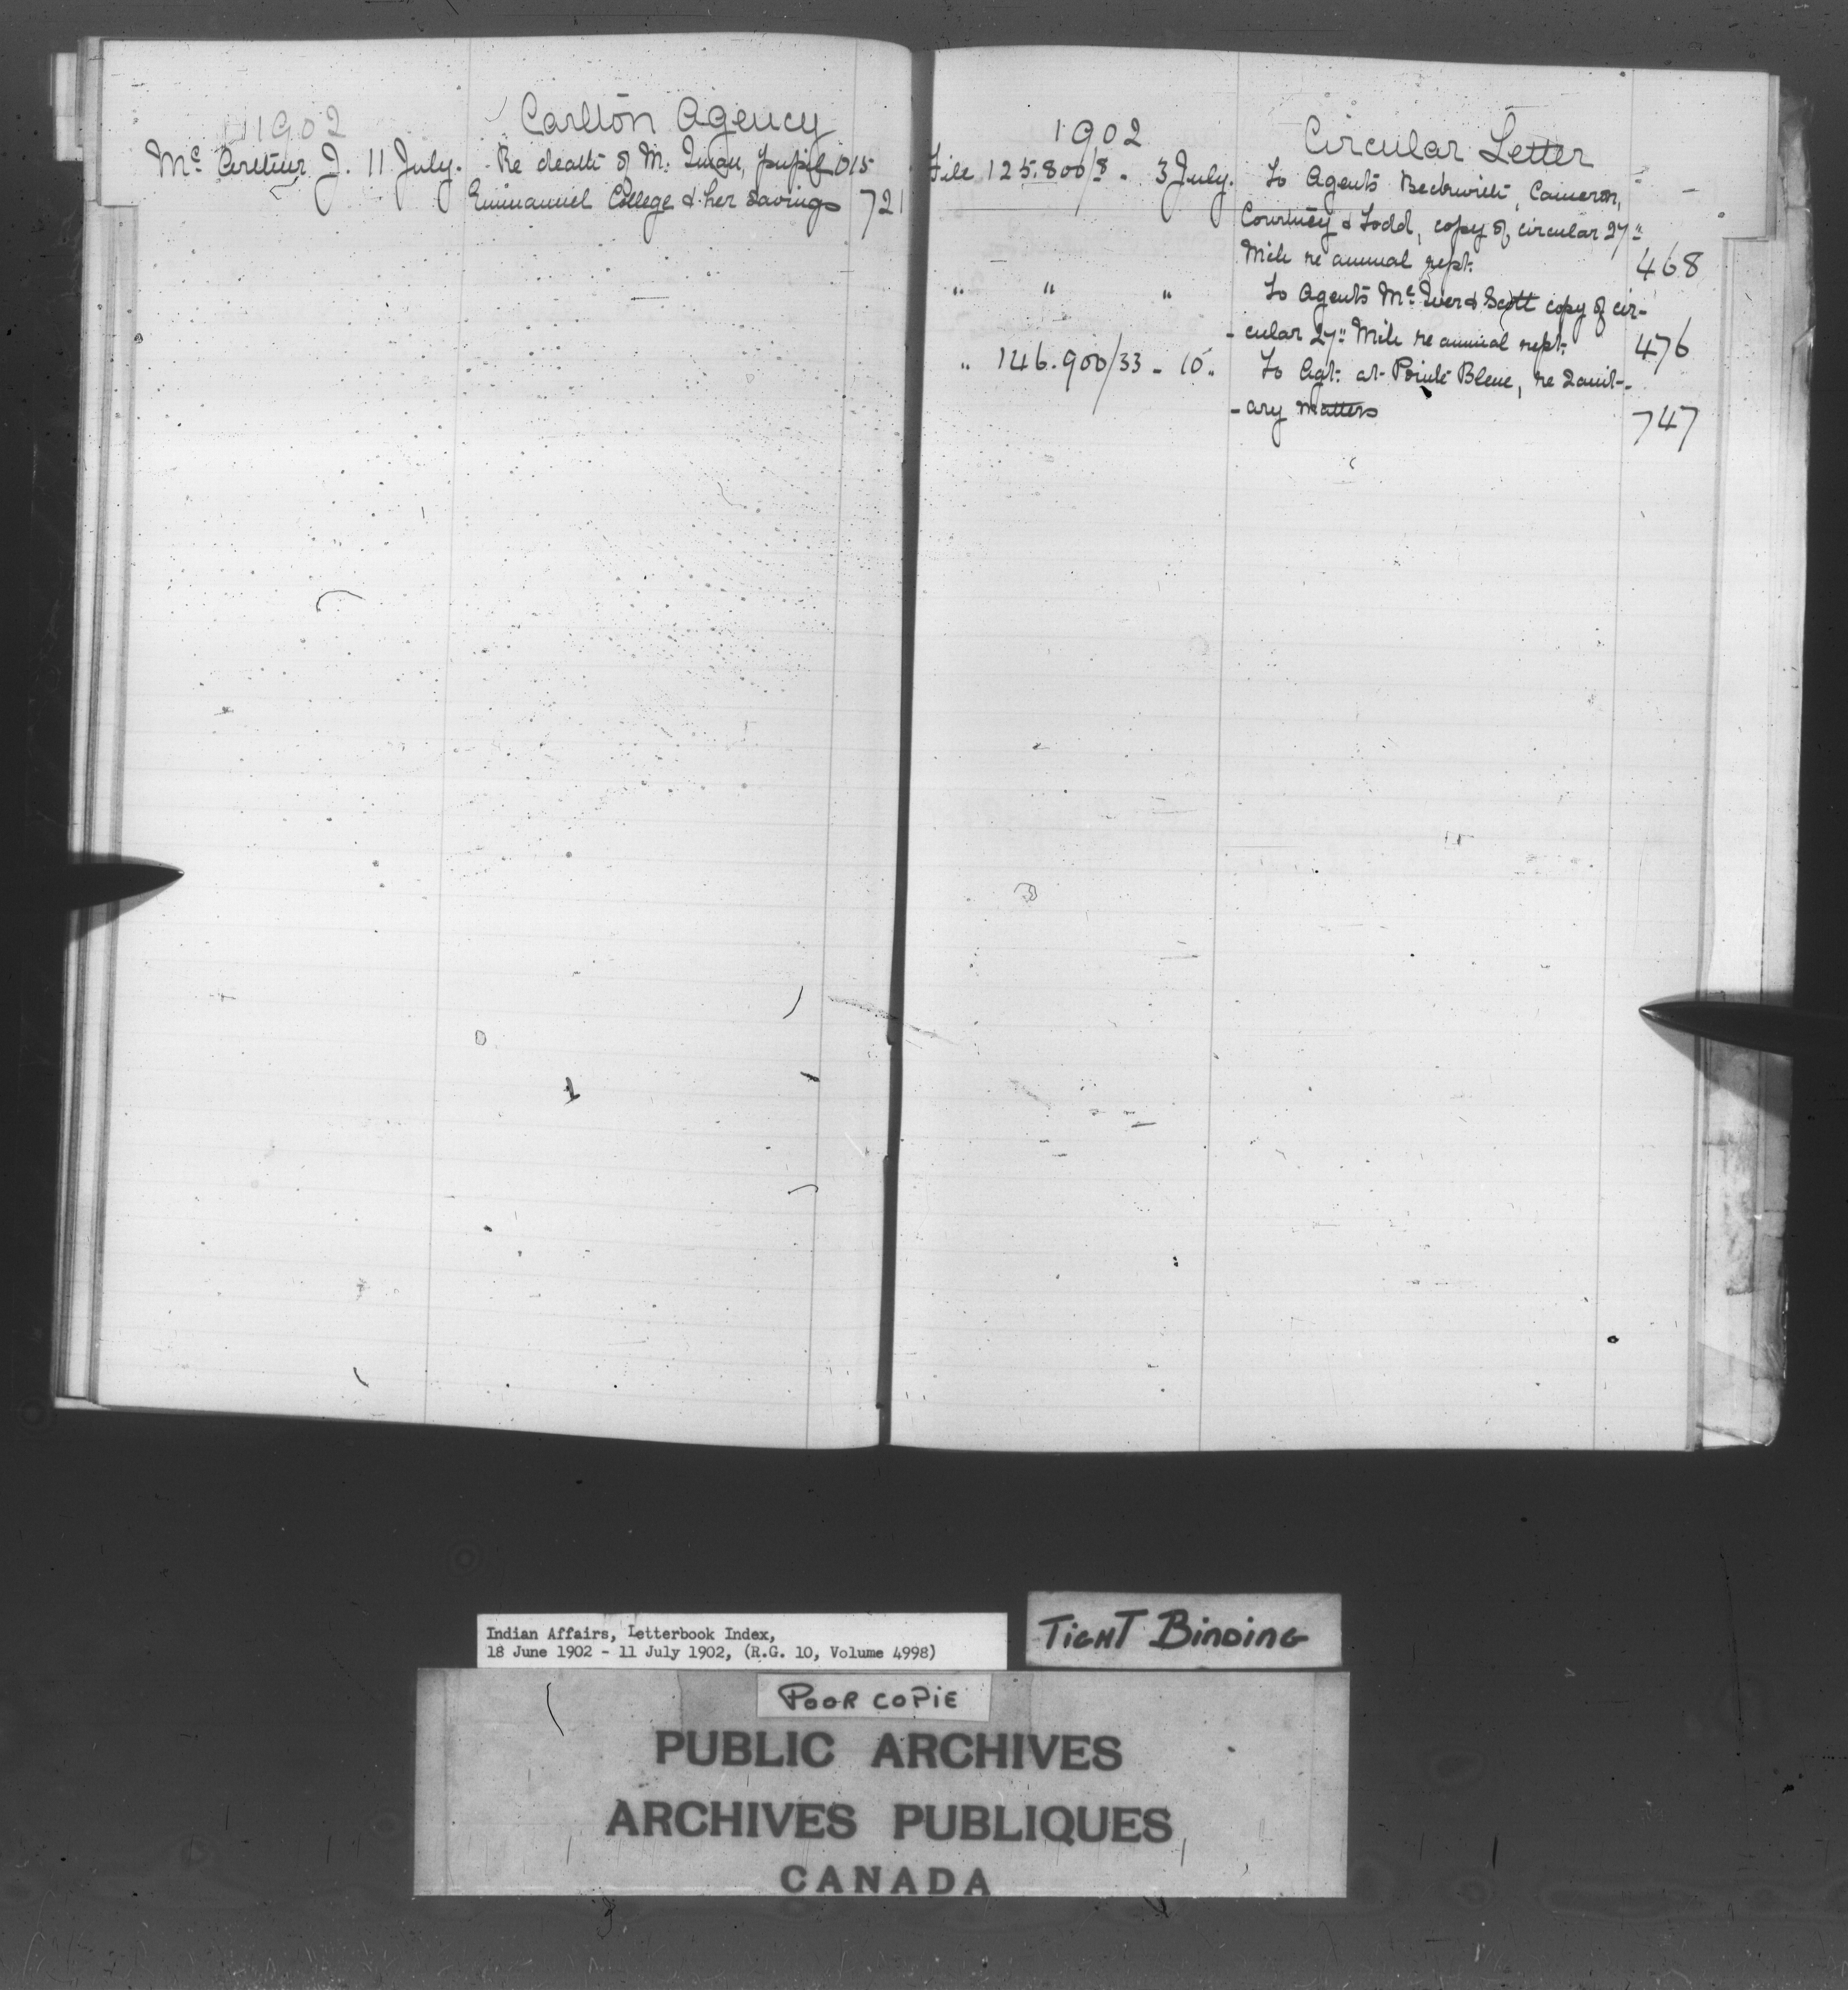 1902
Carlton Agency
Mc Arthur J. 11 July. Re death of M. pupil 015
Emmanuel College & her savings 721
1902
Circular Letter
File 125.800/8 - 3 July. To Agents Beckwith, Cameron,
Courtney & Todd, copy of circular 27"
Mch re annual rept. 468
" " " To Agents McIver & Scott copy of cir-
-cular 27" Mch re annual rept. 476
" 146.900/33 - 10 " To Agt. at Pointe Bleue, re sanit-
-ary matters 747
Indian Affairs, Letterbook Index,
18 June 1902 - 11 July 1902, (R.G. 10, Volume 4998)
TIGHT BINDING
POOR COPIE
PUBLIC ARCHIVES
ARCHIVES PUBLIQUES
CANADA